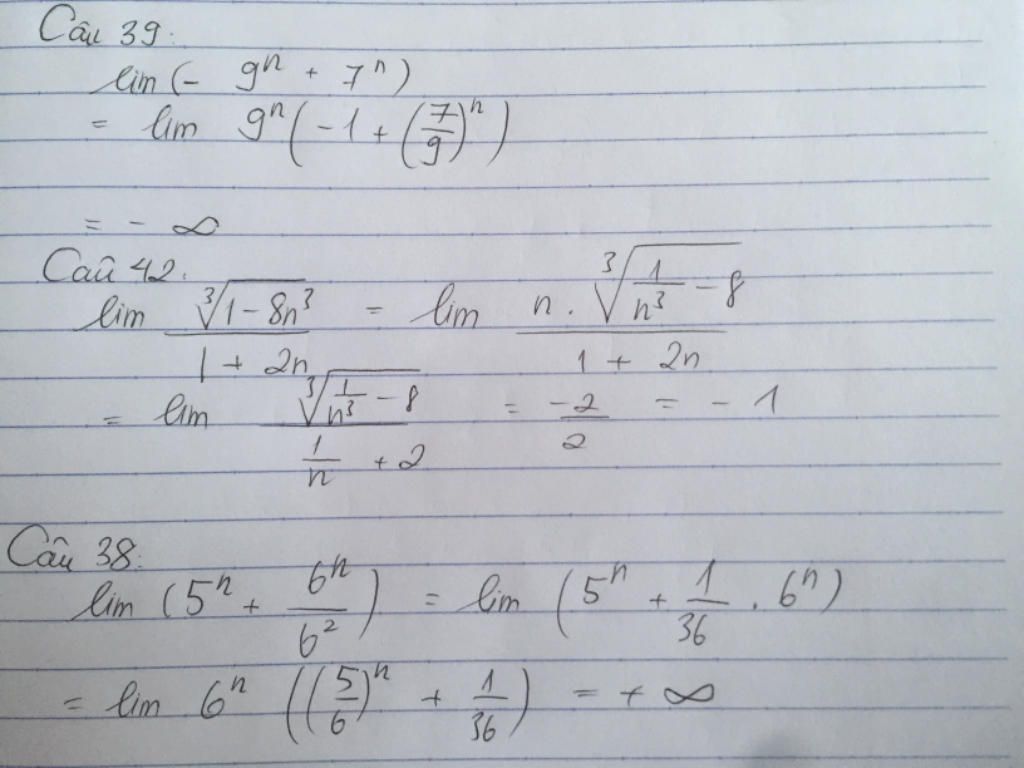 Câu 39:
lim (- 9ⁿ + 7ⁿ)
= lim 9ⁿ(-1 + (7/9)ⁿ)
= - ∞
Câu 42:
lim ∛(1 - 8n³) / (1 + 2n) = lim n . ∛(1/n³ - 8) / (1 + 2n)
= lim ∛(1/n³ - 8) / (1/n + 2) = -2/2 = - 1
Câu 38:
lim (5ⁿ + 6ⁿ/6²) = lim (5ⁿ + 1/36 . 6ⁿ)
= lim 6ⁿ ((5/6)ⁿ + 1/36) = + ∞